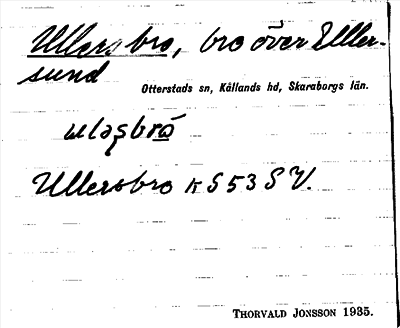 Ullersbro, bro över Uller-
sund
Otterstads sn, Kållands hd, Skaraborgs län.
Ullersbro K S 53 S V.
THORVALD JONSSON 1935.